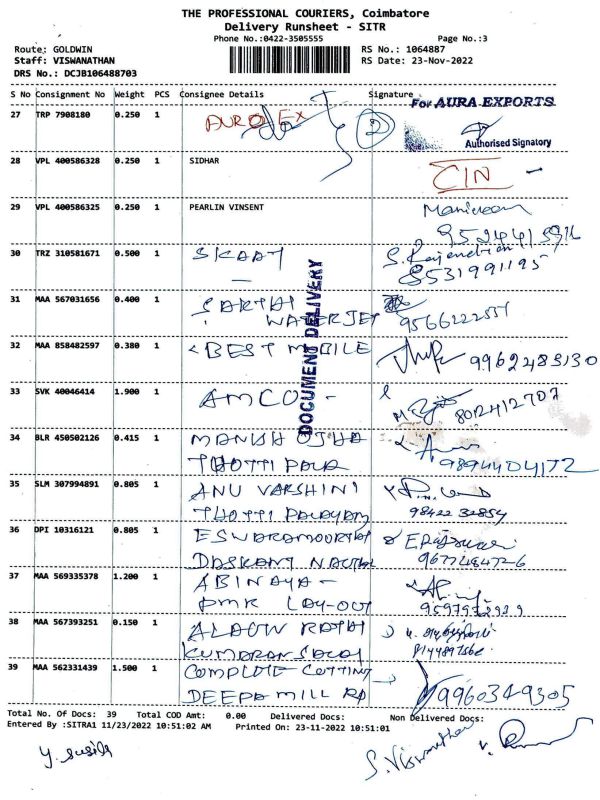 THE PROFESSIONAL COURIERS, Coimbatore
Delivery Runsheet - SITR
Phone No.:0422-3505555
Page No.:3
Route: GOLDWIN
RS No.: 1064887
Staff: VISWANATHAN
RS Date: 23-Nov-2022
DRS No.: DCJB106488703
S No Consignment No Weight PCS Consignee Details Signature
For AURA EXPORTS
27 TRP 7908180 0.250 1
Authorised Signatory
28 VPL 400586328 0.250 1 SIDHAR
29 VPL 400586325 0.250 1 PEARLIN VINSENT
30 TRZ 310581671 0.500 1 SKAAY
8531991195
DOCUMENT DELIVERY
31 MAA 567031656 0.400 1
WATERJET
32 MAA 858482597 0.380 1 BEST MOBILE 9962483130
33 SVK 40046414 1.900 1 AMCO - 8012412707
34 BLR 450502126 0.415 1 MANISH OJHA
9894404172
35 SLM 307994891 0.805 1 ANU VARSHINI
THOTTI PALAYAM
36 DPI 10316121 0.805 1 ESWARAMOORTHY
37 MAA 569335378 1.200 1 ABINAYA -
PMR LAY-OUT
38 MAA 567393251 0.150 1
39 MAA 562331439 1.500 1 COMPLETE CUTTING
DEEPA MILL RD 9960349305
Total No. Of Docs: 39 Total COD Amt: 0.00 Delivered Docs: Non Delivered Docs:
Entered By :SITRA1 11/23/2022 10:51:02 AM Printed On: 23-11-2022 10:51:01
S. Viswanathan